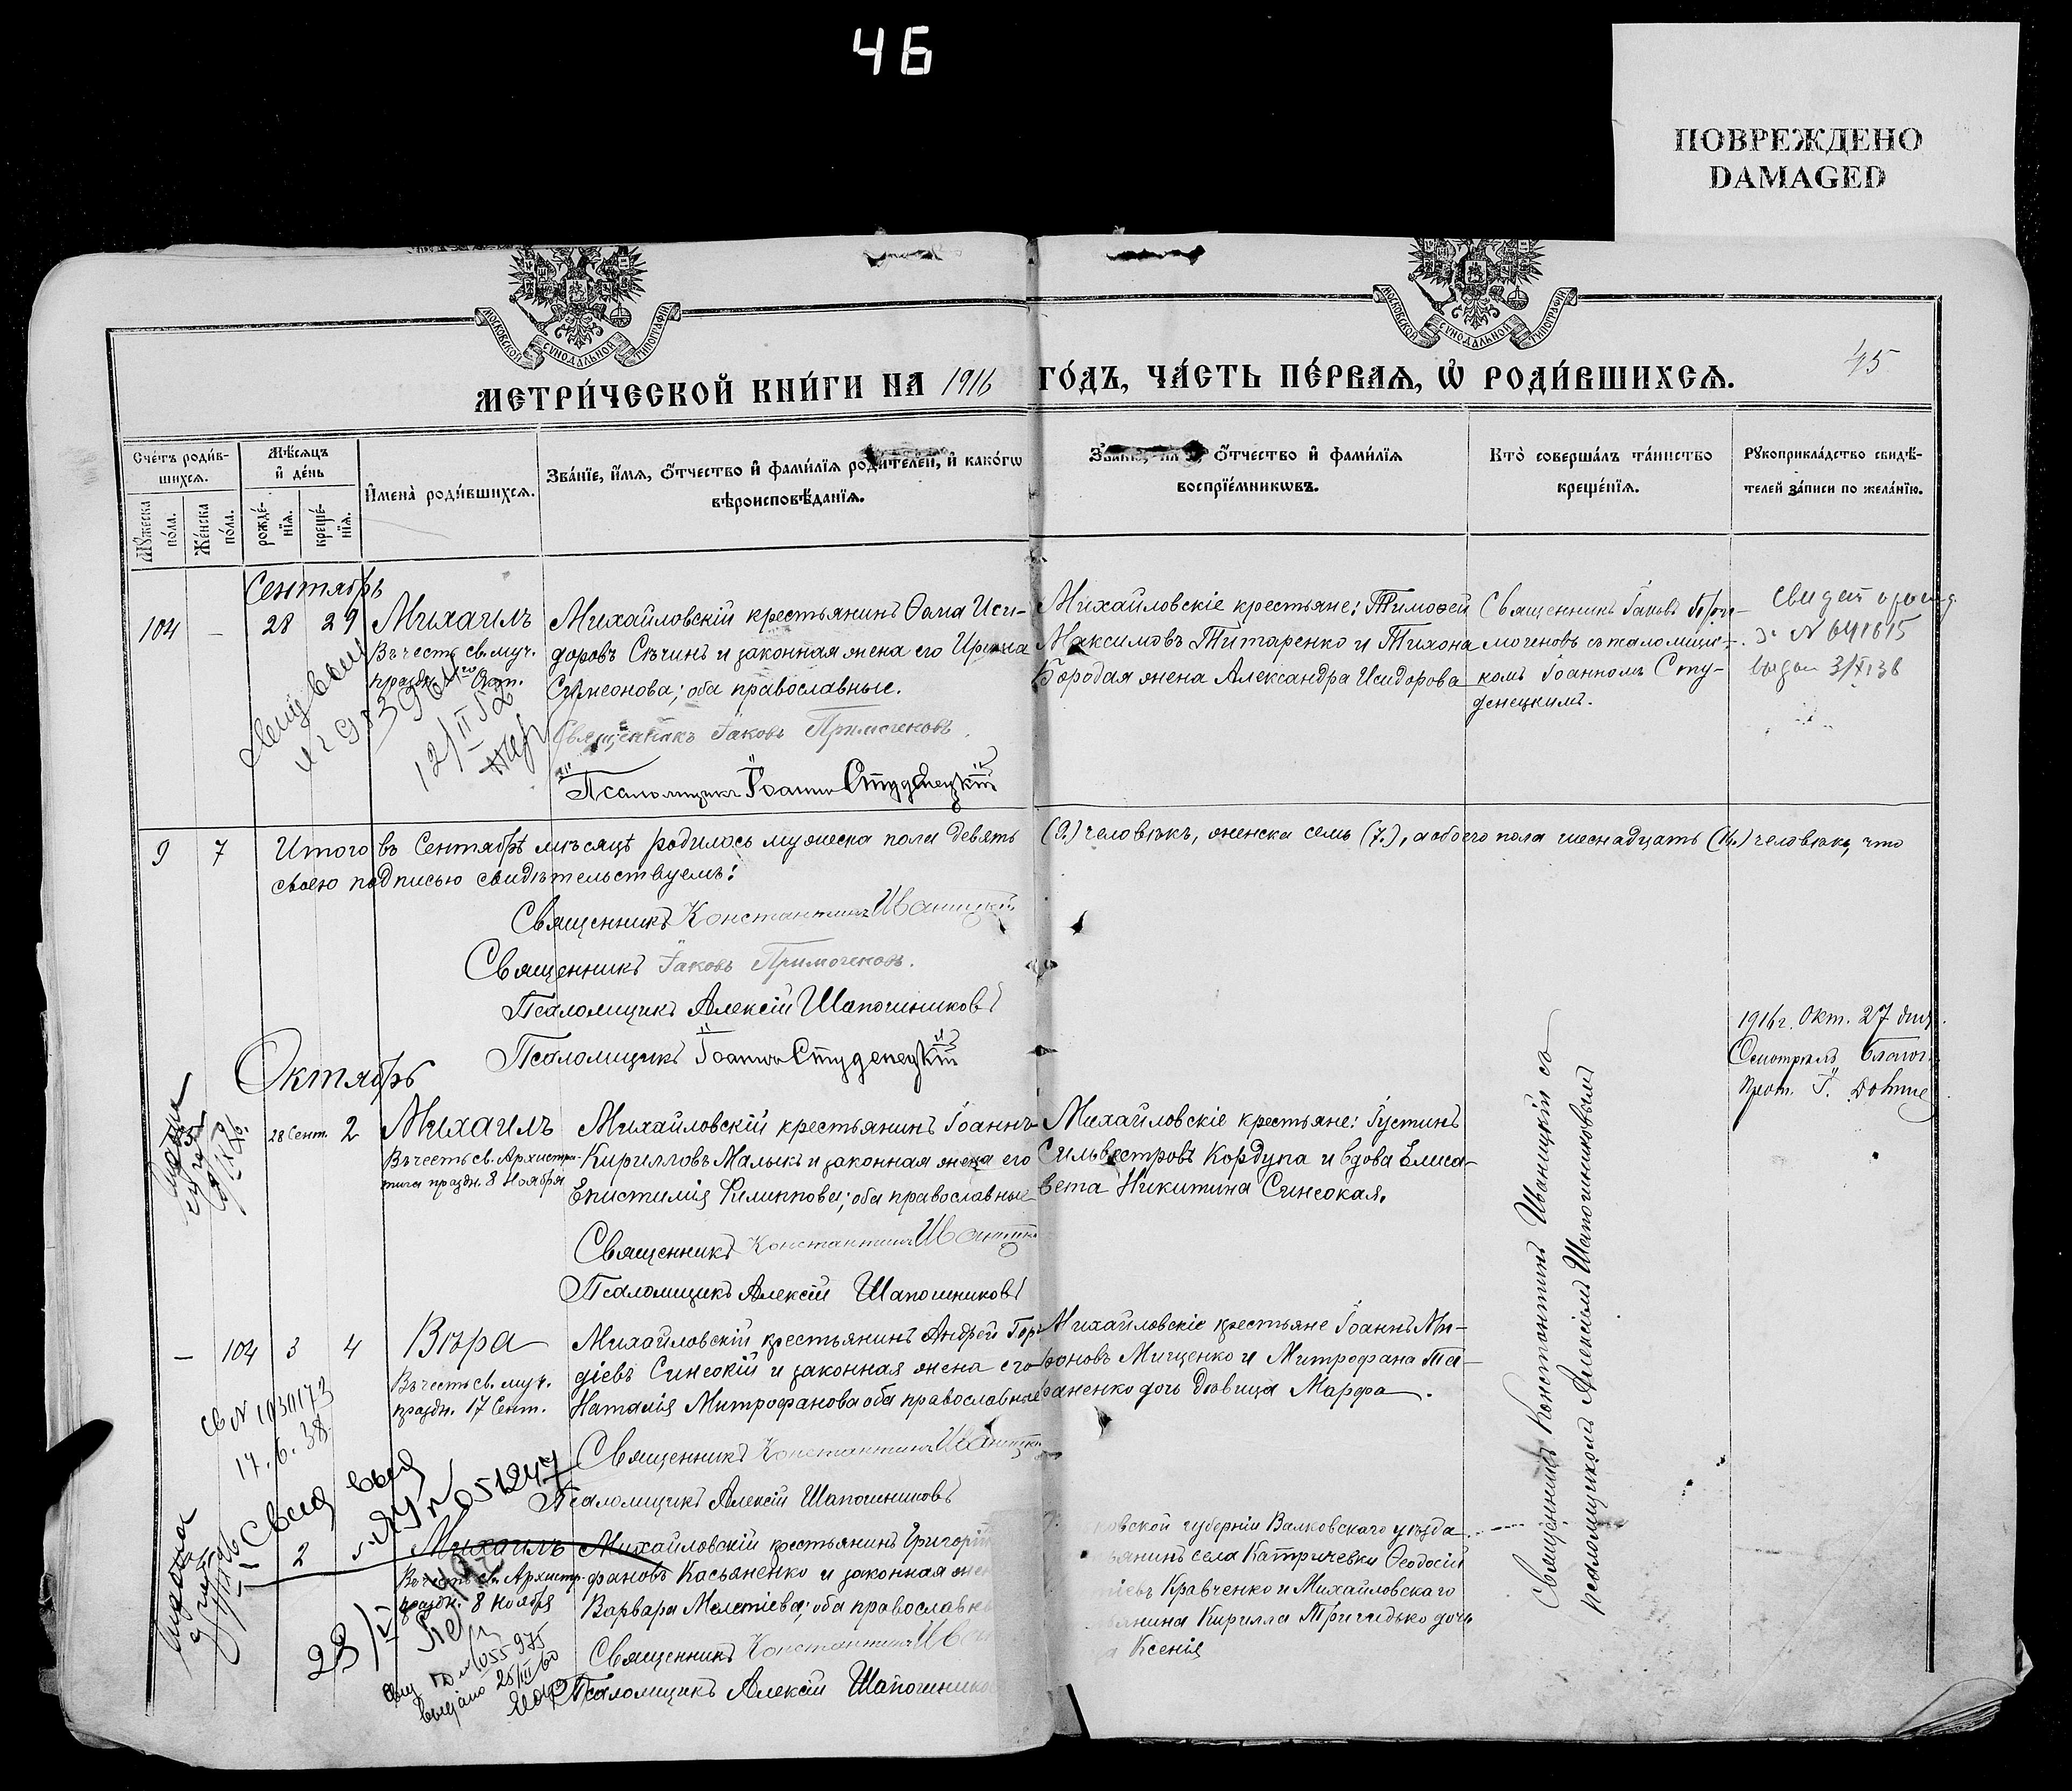 46
ПОВРЕЖДЕНО
DAMAGED
МОСКОВСКОЙ СѴНОДАЛЬНОЙ ТИПОГРАФІИ
МОСКОВСКОЙ СѴНОДАЛЬНОЙ ТИПОГРАФІИ
45
МЕТРИ́ЧЕСКОЙ КНИ́ГИ НА 1916 ГО́ДЪ, ЧА́СТЬ ПЕ́РВАѦ, Ѡ РОДИ́ВШИХСѦ.
Сче́тъ роди́в-
шихсѧ.
Мꙋ́жеска
по́ла.
Же́нска
по́ла.
Мѣ́сѧцъ
и҆ де́нь
рожде́-
нїѧ.
креще́-
нїѧ.
И҆мена̀ роди́вшихсѧ.
Зва́нїе, и҆́мѧ, ѻ҆́тчество и҆ фами́лїѧ роди́телей, и҆ како́гѡ
вѣроисповѣ́данїѧ.
Зва́нїе, ѻ҆́тчество и҆ фами́лїѧ
воспрїе́мникѡвъ.
Кто̀ соверша́лъ та́инство
креще́нїѧ.
Рꙋкоприкла́дство свидѣ́-
телей за́писи по жела́нїю.
Сентябрь
104 – 28 29 Михаилъ
Въ честь св. муч.
праздн. Окт.
Михайловскій крестьянинъ Ѳома Иси-
доровъ Сѣчинъ и законная жена его Ирина
Симеонова; оба православные.
Священникъ Іаковъ Примогеновъ
Псаломщикъ Іоаннъ Студенецкій
Михайловскіе крестьяне: Тимоѳей
Максимовъ Титаренко и Тихона
Бородая жена Александра Исидорова
Священникъ Іаковъ При-
могеновъ съ псаломщи-
комъ Іоанномъ Сту-
денецкимъ.
№ 641615
12/II 52
9 7 Итого въ Сентябрѣ мѣсяцѣ родилось мужеска пола девять (9.) человѣкъ, женска семь (7.), а обоего пола шеснадцать (16.) человѣкъ, что
своею подписью свидѣтельствуемъ:
Священникъ Константинъ Иваницкій
Священникъ Іаковъ Примогеновъ.
Псаломщикъ Алексій Шапошниковъ
Псаломщикъ Іоаннъ Студенецкій
1916 г. Окт. 27 дня.
Осмотрѣлъ Благоч.
Прот. І.
Октябрь
28 Сент. 2 Михаилъ
Въ честь св. Архистра-
тига праздн. 8 Ноября
Михайловскій крестьянинъ Іоаннъ
Кирилловъ Малыкъ и законная жена его
Епистимія Филиппова; оба православные
Священникъ Константинъ Иваницкій
Псаломщикъ Алексій Шапошниковъ
Михайловскіе крестьяне: Іустинъ
Сильвестровъ Кордупа и вдова Елиса-
вета Никитина Синеокая.
– 104 3 4 Вѣра
Въ честь св. муч.
праздн. 17 Сент.
Михайловскій крестьянинъ Андрей Гор-
діевъ Синеокій и законная жена его
Наталія Митрофанова оба православные
Священникъ Константинъ Иваницкій
Псаломщикъ Алексій Шапошниковъ
Михайловскіе крестьяне Іоаннъ Ми-
роновъ Мищенко и Митрофана
дочь дѣвица Марфа.
Св № 1030173
17.6.38.
Свид выд
051247
2 Михаилъ
Въ честь св. Архистр.
праздн. 8 Ноября
Михайловскій крестьянинъ Григорій
фановъ Касьяненко и законная жена
Варвара Мелетіева; оба православные
Священникъ Константинъ
Псаломщикъ Алексій Шапошников
ковской губерніи Валковскаго уѣзда
янинъ села Катричевки Ѳеодосій
тіевъ Кравченко и Михайловскаго
янина Кирилла Тригидько дочь
Ксенія
№ 1055975
выдано 25/III 60
Священникъ Константинъ Иваницкій съ
псаломщикомъ Алексіемъ Шапошниковымъ